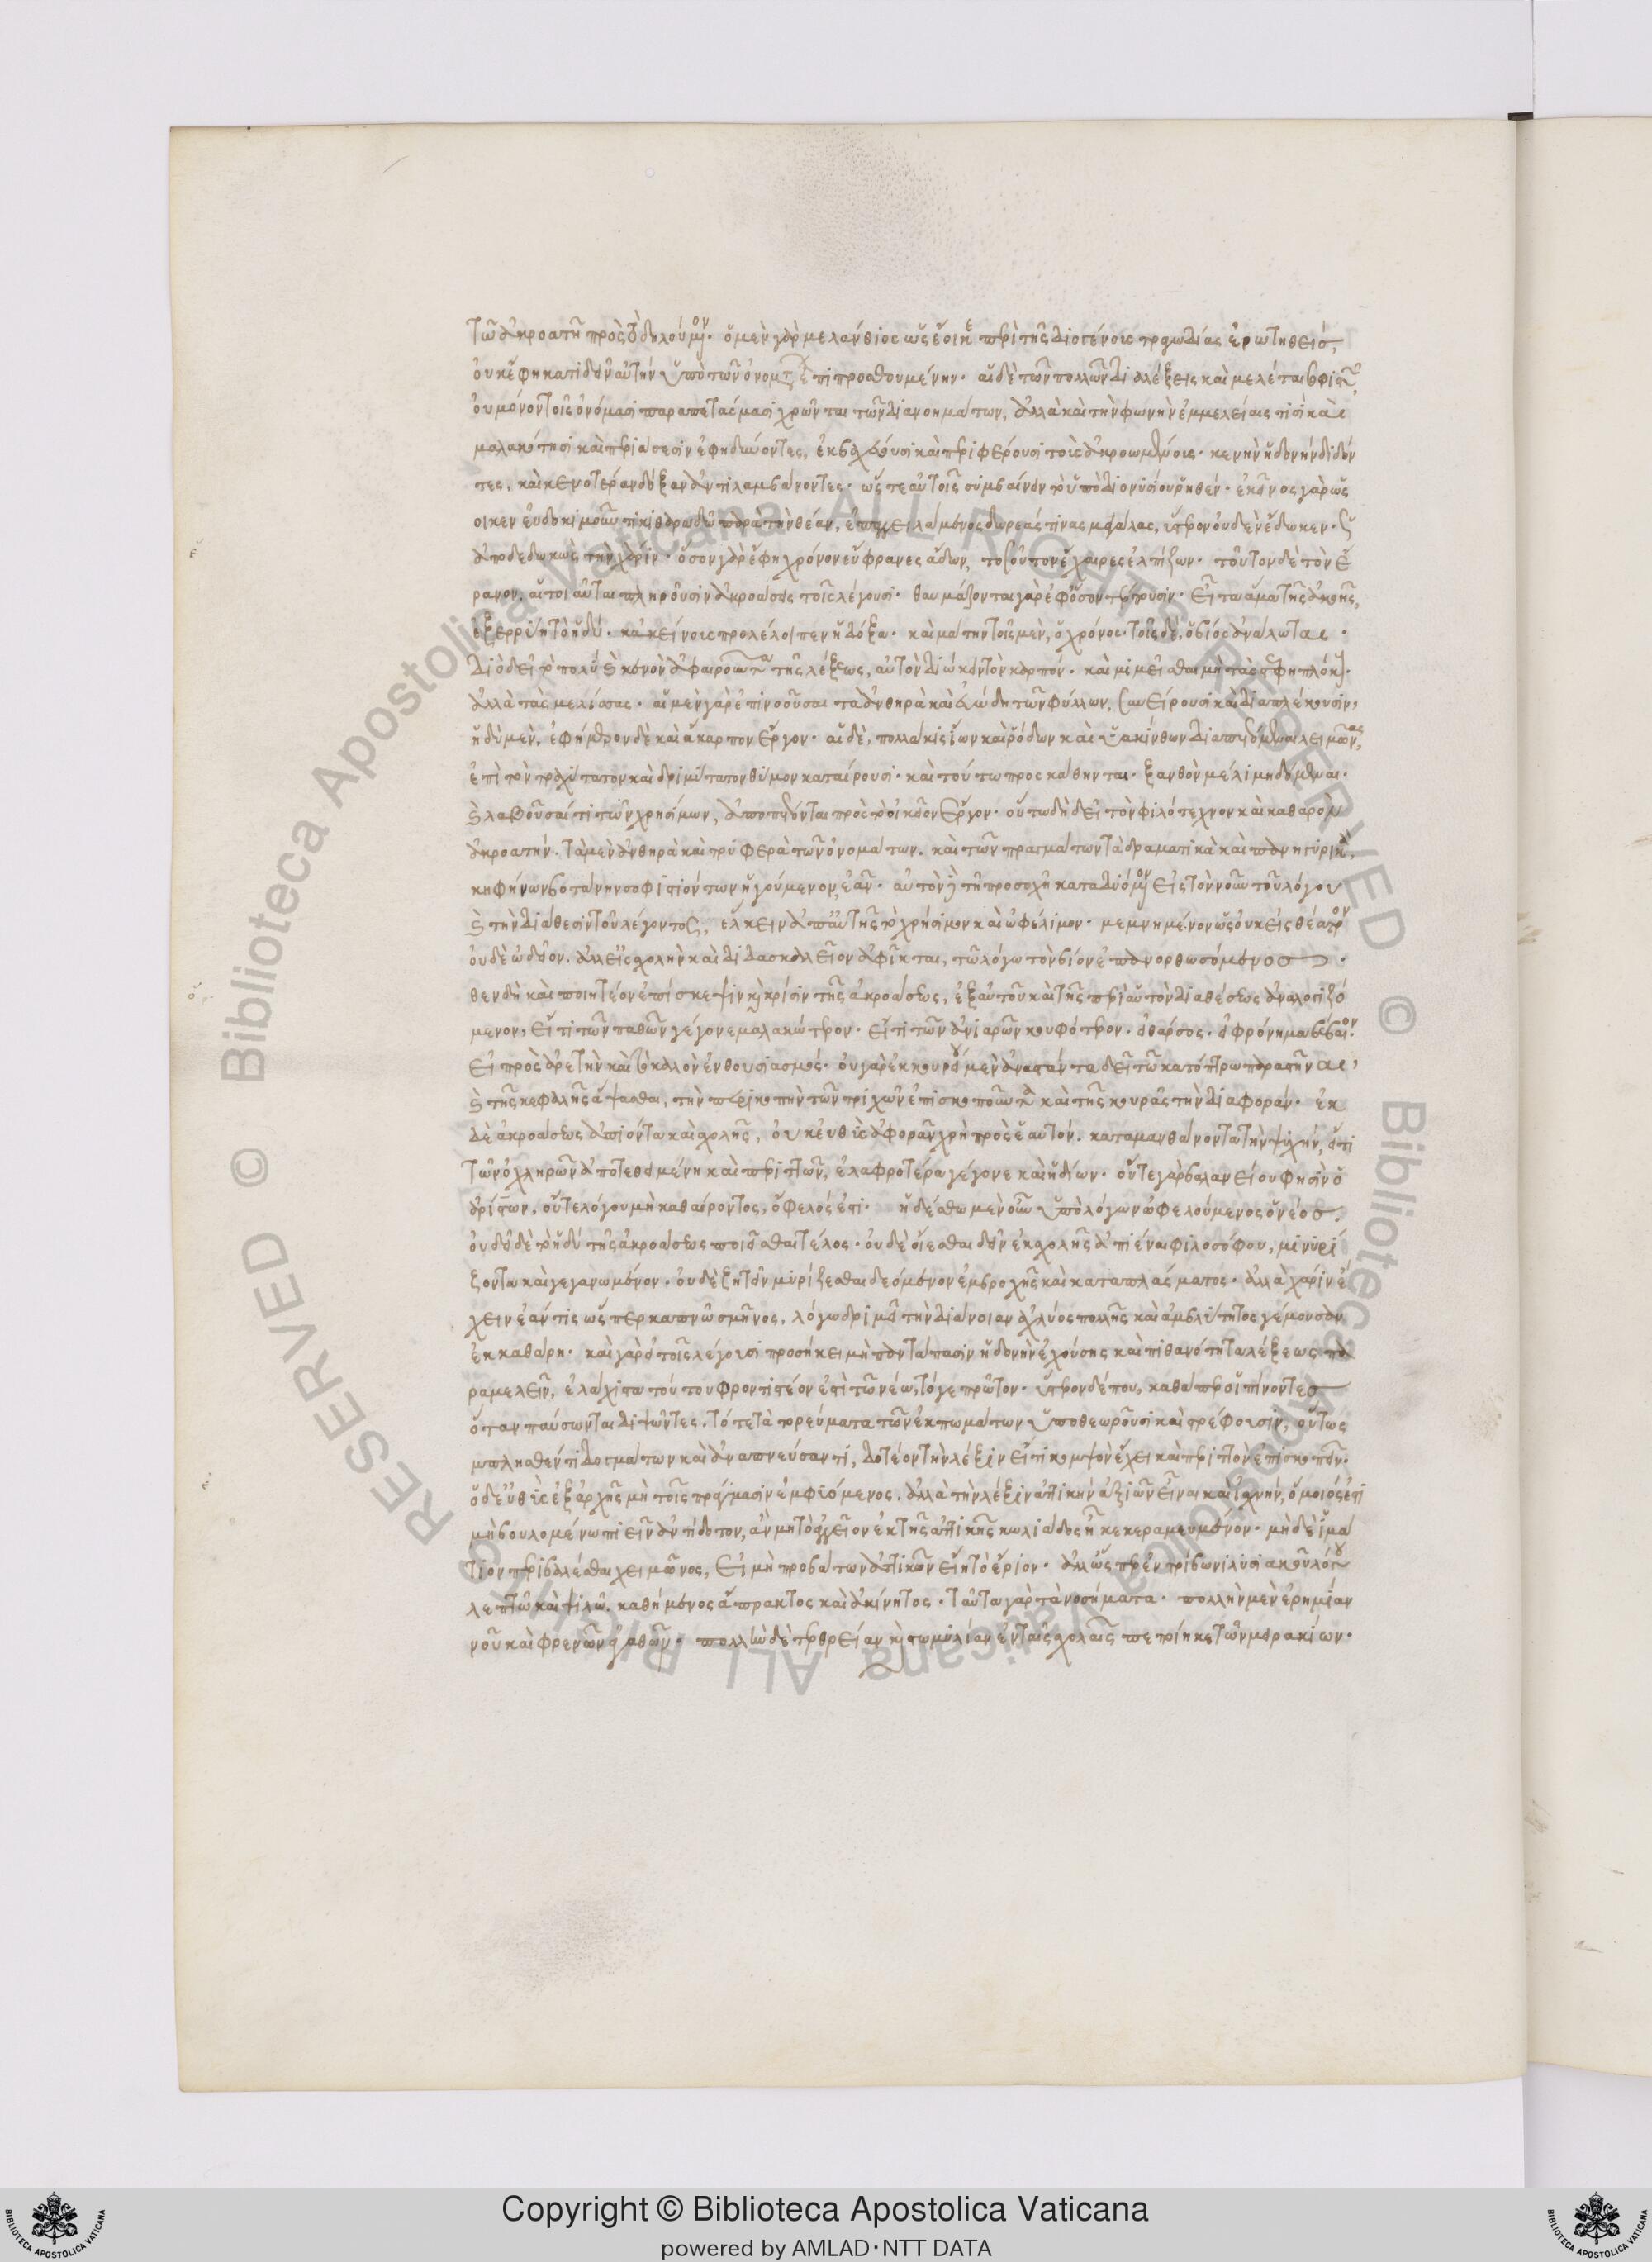 τῶ ἀκροατῆ πρὸς τὸ δηλούμενον. ὁ μὲν γὰρ μελάνθιος ὡς ἔοικε περὶ τῆς διογένους τραγωδίας ἐρωτηθεὶς,
οὐκ ἔφη κατιδεῖν αὐτὴν ὑπὸ τῶν ὀνομάτων ἐπιπροσθουμένην. αἱ δὲ τῶν πολλῶν διαλέξεις καὶ μελέται σοφιστῶν,
οὐ μόνον τοῖς ὀνόμασι παραπετάσμασι χρῶνται τῶν διανοημάτων, ἀλλὰ καὶ τὴν φωνὴν ἐμμελείαις τισὶ καὶ
μαλακότησι καὶ παρισώσεσιν ἐφηδύνοντες, ἐκβακχεύουσι καὶ παραφέρουσι τοὺς ἀκροωμένους. κενὴν ἡδονὴν διδόν
τες, καὶ κενοτέραν δόξαν ἀντιλαμβάνοντες. ὥστε αὐτοῖς συμβαίνειν τὸ ὑπὸ διονυσίου ῥηθέν. ἐκεῖνος γὰρ ὡς
οικεν εὐδοκιμοῦντι κιθαρωδῶ παρὰ τὴν θέαν, ἐπαγγειλάμενος δωρεάς τινας μεγάλας, ὕστερον οὐδὲν ἔδωκεν. ὡς
ἀποδεδωκὼς τὴν χάριν. ὅσον γὰρ ἔφη χρόνον εὔφρανες ἄδων, τοσοῦτον ἔχαιρες ἐλπίζων. τοῦτον δὲ τὸν ἔ
ρανον, αἱ τοιαῦται πληροῦσιν ἀκροάσεις τοῖς λέγουσι. θαυμάζονται γὰρ ἐφ' ὅσον τέρπουσιν. εἶτα ἅμα τῆς ἀκοῆς,
ἐξερρύη τὸ ἡδύ. κἀκείνους προλέλοιπεν ἡ δόξα. καὶ μάτην τοῖς μὲν, ὁ χρόνος. τοῖς δὲ, ὁ βίος ἀνάλωται.
διὸ δεῖ τὸ πολὺ καὶ κενὸν ἀφαιροῦντα τῆς λέξεως, αὐτὸν διώκειν τὸν καρπόν. καὶ μιμεῖσθαι μὴ τὰς στεφηπλόκους.
ἀλλὰ τὰς μελίσσας. αἱ μὲν γὰρ ἐπινοοῦσαι τὰ ἀνθηρὰ καὶ εὐώδη τῶν φύλλων, συνείρουσι καὶ διαπλέκουσιν,
ἡδὺ μὲν, ἐφήμερον δὲ καὶ ἄκαρπον ἔργον. αἱ δὲ, πολλάκις ἴων καὶ ῥόδων καὶ ὑακίνθων διαπετόμεναι λειμῶνας,
ἐπὶ τὸν τραχύτατον καὶ δριμύτατον θύμον καταίρουσι. καὶ τούτω προσκάθηνται. ξανθὸν μέλι μηδόμεναι.
καὶ λαβοῦσαί τι τῶν χρησίμων, ἀποπέτονται πρὸς τὸ οἰκεῖον ἔργον. οὕτω δὴ δεῖ τὸν φιλότεχνον καὶ καθαρὸν
ἀκροατὴν. τὰ μὲν ἀνθηρὰ καὶ τρυφερὰ τῶν ὀνομάτων. καὶ τῶν πραγμάτων τὰ δραματικὰ καὶ πανηγυρικὰ,
κηφήνων βοτάνην σοφιστιόντων ἡγούμενον, ἐᾶν. αὐτὸν δὲ τῆ προσοχῆ καταδυόμενον εἰς τὸν νοῦν τοῦ λόγου
καὶ τὴν διάθεσιν τοῦ λέγοντος, ἕλκειν ἀπ' αὐτῆς τὸ χρήσιμον καὶ ὠφέλιμον. μεμνημένον ὡς οὐκ εἰς θέατρον
οὐδὲ ὠδεῖον. ἀλλ' εἰς σχολὴν καὶ διδασκαλεῖον ἀφῖκται, τῶ λόγω τὸν βίον ἐπανορθωσόμενος.
θεν δὴ καὶ ποιητέον ἐπίσκεψιν καὶ κρίσιν τῆς ἀκροάσεως, ἐξ αὑτοῦ καὶ τῆς περὶ αὑτὸν διαθέσεως ἀναλογιζό
μενον, εἴ τι τῶν παθῶν γέγονε μαλακώτερον. εἴ τι τῶν ἀνιαρῶν κουφότερον. εἰ θάρσος. εἰ φρόνημα βέβαιον.
εἰ πρὸς ἀρετὴν καὶ τὸ καλὸν ἐνθουσιασμός. οὐ γὰρ ἐκ κουρείου μὲν ἀναστάντα δεῖ τῶ κατόπτρω παραστῆναι,
καὶ τῆς κεφαλῆς ἅψασθαι, τὴν περικοπὴν τῶν τριχῶν ἐπισκοποῦντα καὶ τῆς κουρᾶς τὴν διαφοράν. ἐκ
δὲ ἀκροάσεως ἀπιόντα καὶ σχολῆς, οὐκ εὐθὺς ἀφορᾶν χρὴ πρὸς ἑαυτόν. καταμανθάνοντα τὴν ψυχήν, εἴ τι
τῶν ὀχληρῶν ἀποτεθειμένη καὶ περιττῶν, ἐλαφροτέρα γέγονε καὶ ἡδίων. οὔτε γὰρ βαλανείου φησὶν ὁ
ἀρίστων, οὔτε λόγου μὴ καθαίροντος, ὄφελός ἐστι. ἡδέσθω μὲν οὖν ὑπὸ λόγων ὠφελούμενος ὁ νέος.
οὐ δεῖ δὲ τὸ ἡδὺ τῆς ἀκροάσεως ποιεῖσθαι τέλος. οὐδὲ οἴεσθαι δεῖν ἐκ σχολῆς ἀπιέναι φιλοσόφου, μινυρί
ζοντα καὶ γεγανωμένον. οὐδὲ ζητεῖν μυρίζεσθαι δεόμενον ἐμβροχῆς καὶ καταπλάσματος. ἀλλὰ χάριν ἔ
χειν ἐάν τις ὥσπερ καπνῶ σμῆνος, λόγω δριμεῖ τὴν διάνοιαν ἀχλύος πολλῆς καὶ ἀμβλύτητος γέμουσαν
ἐκκαθάρη. καὶ γὰρ εἰ τοῖς λέγουσι προσήκει μὴ παντάπασιν ἡδονὴν ἐχούσης καὶ πιθανότητα λέξεως πα
ραμελεῖν, ἐλάχιστα τούτου φροντιστέον ἐστὶ τῶ νέω, τό γε πρῶτον. ὕστερον δέ που, καθάπερ οἱ πίνοντες
ὅταν παύσωνται διψῶντες. τότε τὰ τορεύματα τῶν ἐκπωμάτων ὑποθεωροῦσι καὶ στρέφουσιν, οὕτως
μπλησθέντι δογμάτων καὶ ἀναπνεύσαντι, δοτέον τὴν λέξιν εἴ τι κομψὸν ἔχει καὶ περιττὸν ἐπισκοπεῖν.
ὁ δ' εὐθὺς ἐξ ἀρχῆς μὴ τοῖς πράγμασιν ἐμφυόμενος. ἀλλὰ τὴν λέξιν ἀττικὴν ἀξιῶν εἶναι καὶ ἰσχνήν, ὅμοιός ἐστι
μὴ βουλομένω πιεῖν ἀντίδοτον, ἂν μὴ τὸ ἀγγεῖον ἐκ τῆς ἀττικῆς κωλιάδος ἦ κεκεραμευμένον. μηδὲ ἱμά
τιον περιβαλέσθαι χειμῶνος, εἰ μὴ προβάτων ἀττικῶν εἴη τὸ ἔριον. ἀλλ' ὥσπερ ἐν τρίβωνι λυσιακοῦ λόγου
λεπτῶ καὶ ψιλῶ. καθήμενος ἄπρακτος καὶ ἀκίνητος. ταῦτα γὰρ τὰ νοσήματα. πολλὴν μὲν ἐρημίαν
νοῦ καὶ φρενῶν ἀγαθῶν. πολλὴν δὲ τερθρείαν καὶ στωμυλίαν ἐν ταῖς σχολαῖς πεποίηκε τῶν μειρακίων.
© Biblioteca Apostolica Vaticana ALL RIGHTS RESERVED © Biblioteca Apostolica Vaticana ALL RIGHTS RESERVED
Copyright © Biblioteca Apostolica Vaticana
powered by AMLAD·NTT DATA
BIBLIOTECA APOSTOLICA VATICANA
BIBLIOTECA APOSTOLICA VATICANA